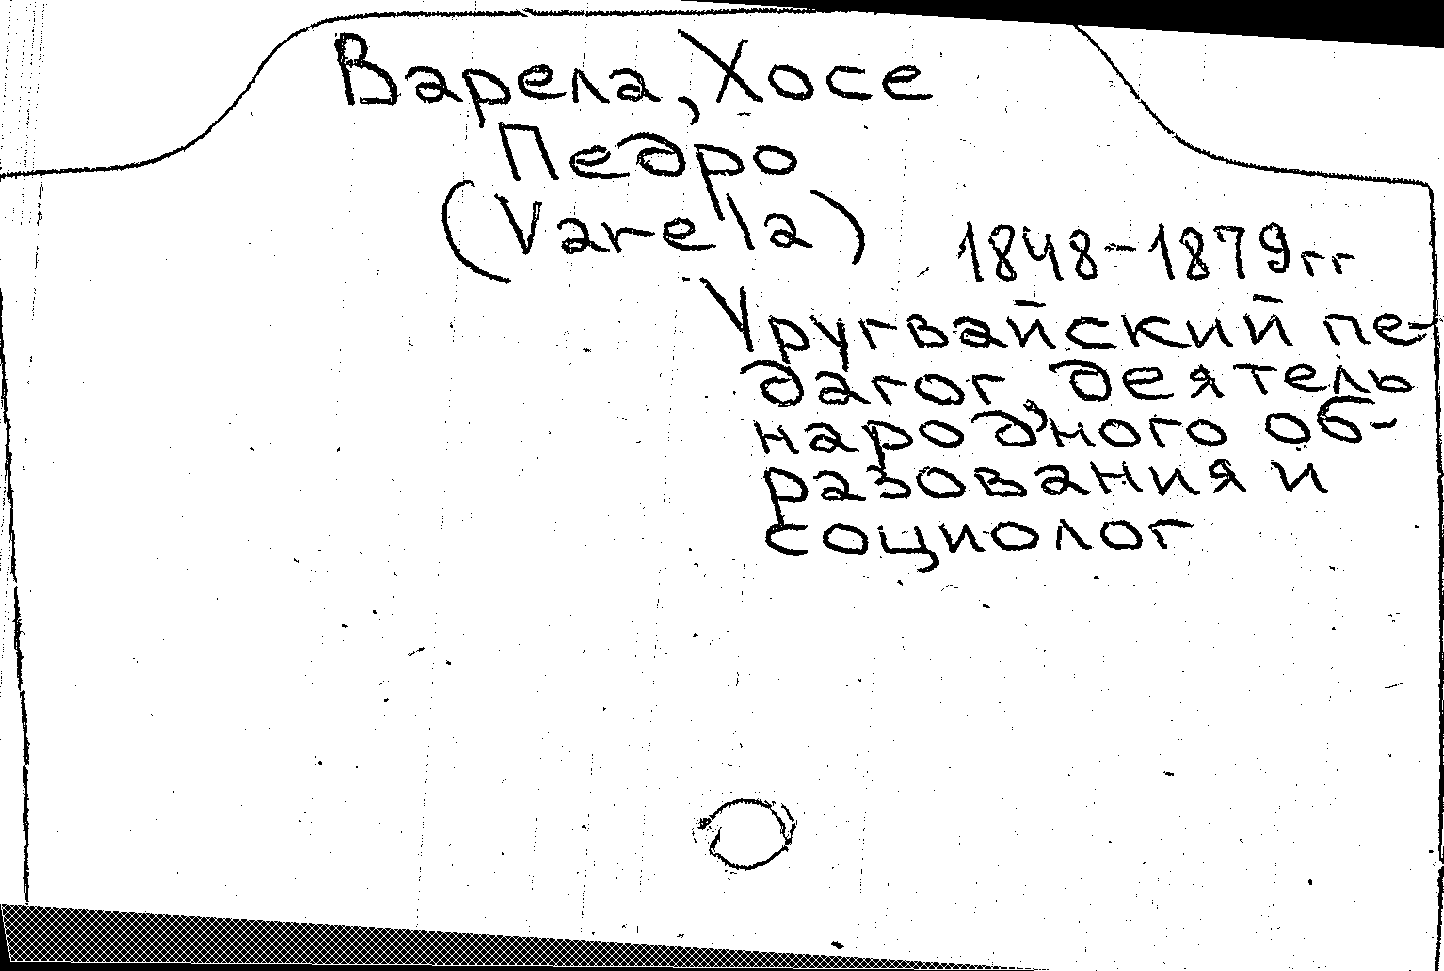 Варела, Хосе
Педро
(Varela)
1848-1879гг
Уругвайский пе-
дагог, деятель
народного об-
разования и
социолог